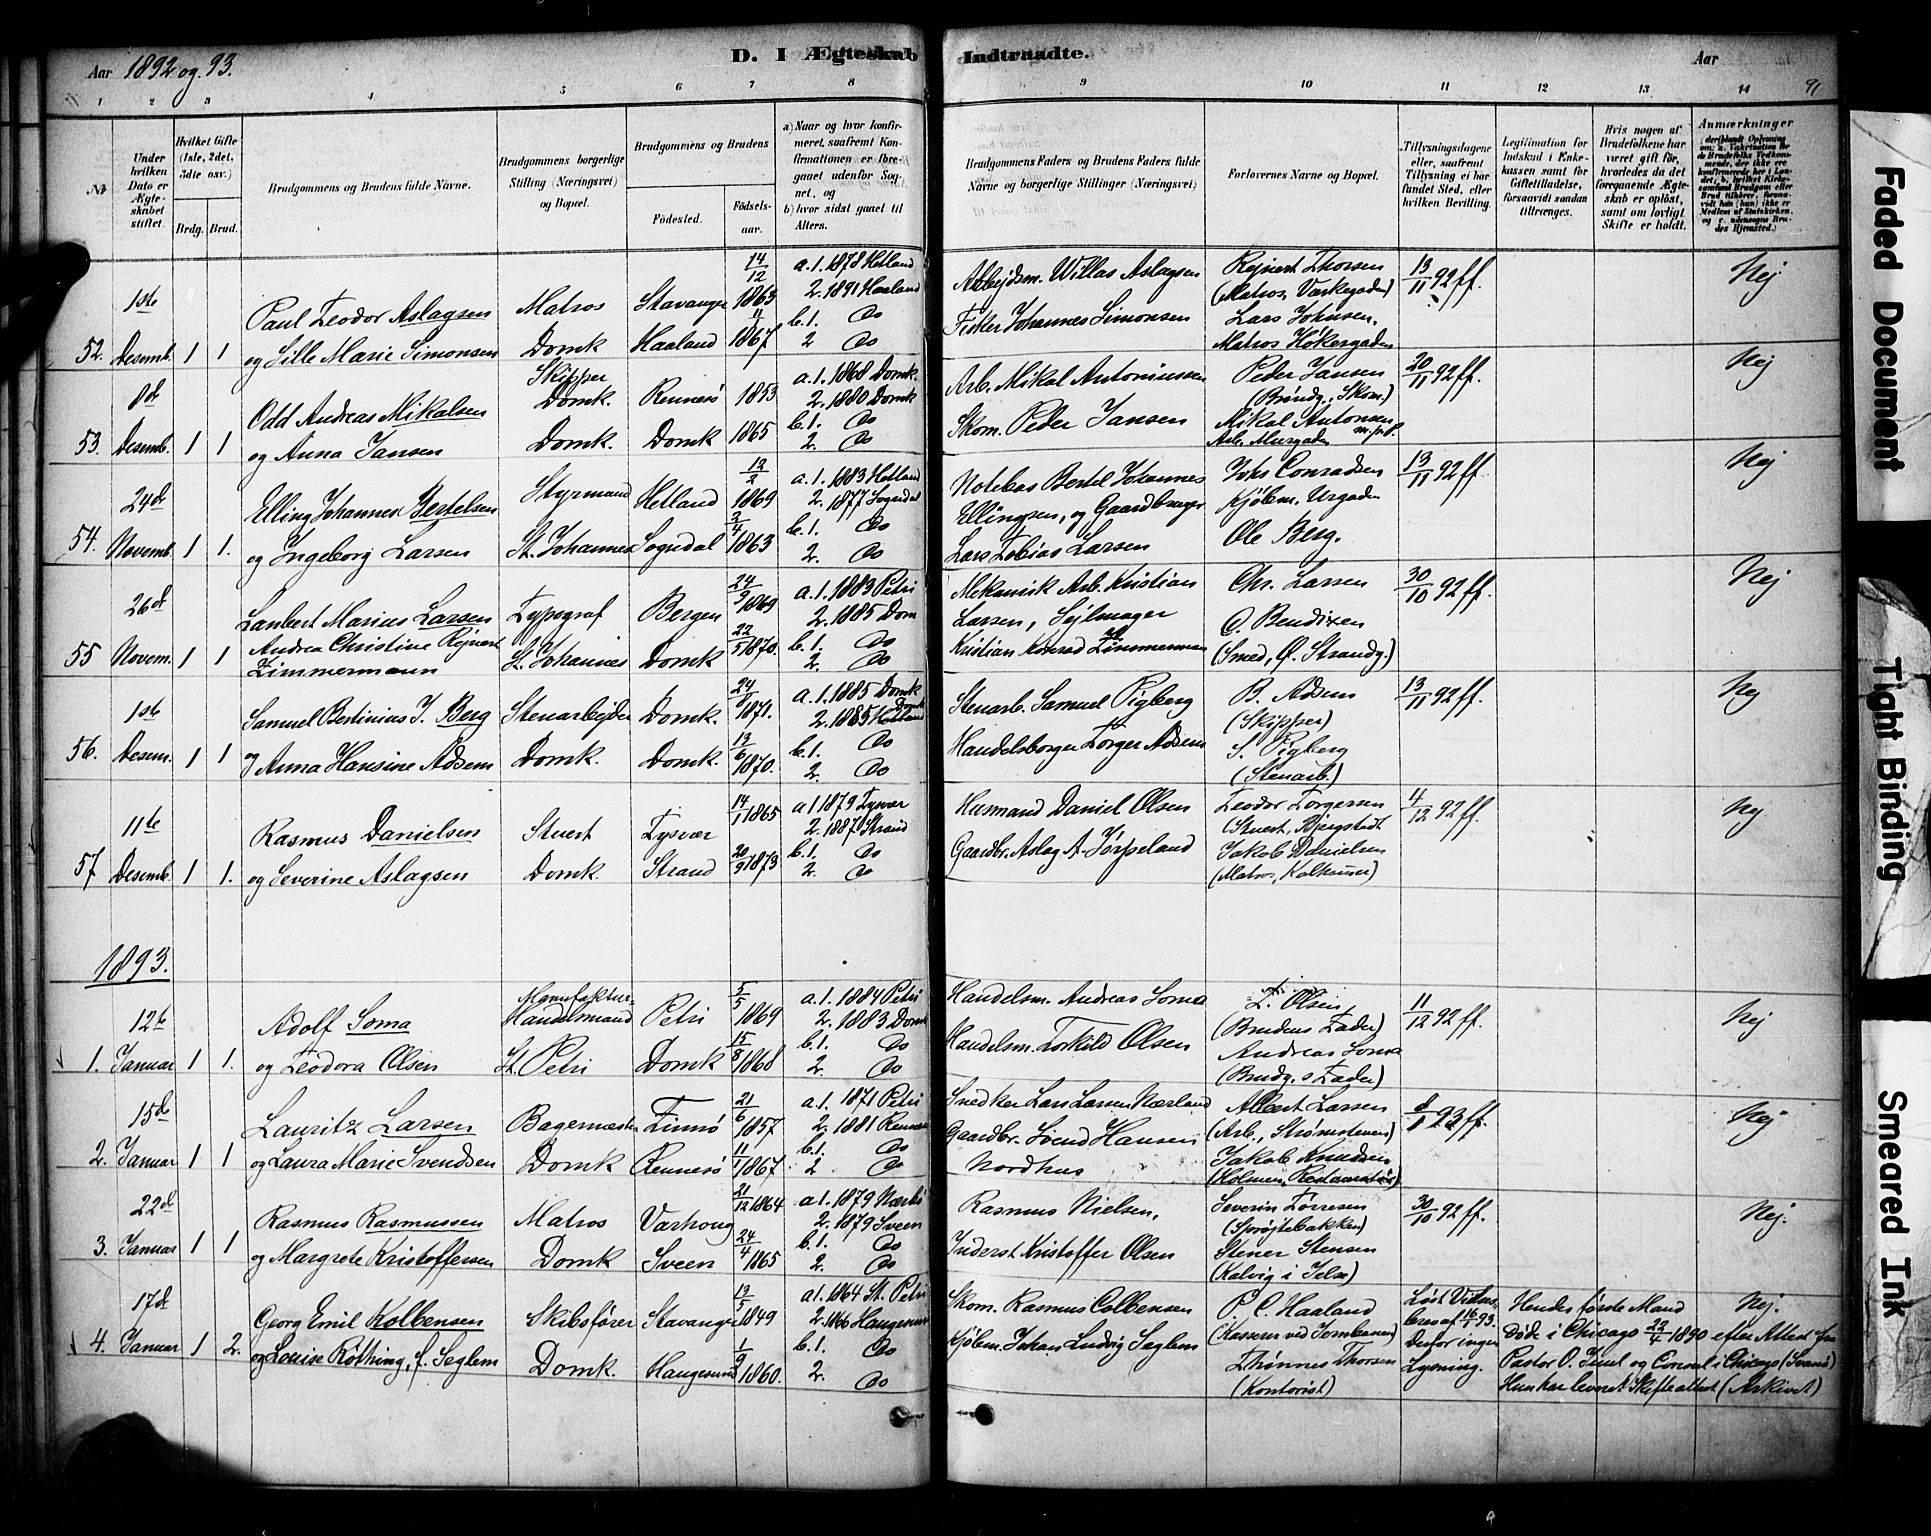 Aar 1892 og 93.
D. I Ægteskab Indtraadte.
Aar
91
1 2 3 4 5 6 7 8 9 10 11 12 13 14
No
Under hvilken Dato er Ægteskabet stiftet.
Hvilket Gifte (1ste, 2det, 3die osv.)
Brdg. Brud.
Brudgommens og Brudens fulde Navne.
Brudgommens borgerlige Stilling (Næringsvei) og Bopæl.
Brudgommens og Brudens
Fødested.
Fødselsaar.
a) Naar og hvor konfirmeret, saafremt Konfirmationen er foregaaet udenfor Sognet, og
b) hvor sidst gaaet til Alters.
Brudgommens Faders og Brudens Faders fulde Navne og borgerlige Stillinger (Næringsvei)
Forlovernes Navne og Bopæl.
Tillysningsdagene eller, saafremt Tillysning ei har fundet Sted, efter hvilken Bevilling.
Legitimation for Indskud i Enkekassen samt for Giftetilladelse, forsaavidt saadan tiltrænges.
Hvis nogen af Brudefolkene har været gift før, hvorledes da det foregaaende Ægteskab er opløst, samt om lovligt Skifte er holdt.
Anmærkninger
52. 1ste Desemb. 1 1
Paul Teodor Aslagsen
og Sille Marie Simonsen
Matros Domk
Stavanger Haaland
14/12 1863
1867
a. 1. 1878 Hetland
2. 1891 Haaland
b. 1. Do
2 Do
Arbejdsm. Willas Aslagsen
Fisker Johannes Simonsen
Rejnert Thorsen
(Matros, Værkegaden)
Lars Johnsen,
Matros Høkergaden
13/11 92 ff.
Nej
53. 8d Desemb. 1 1
Odd Andreas Mikalsen
og Anna Jansen
Skipper Domk.
Domk.
Rennesø 1853
Domk 1865
a. 1. 1868 Domk.
2. 1880 Domk
b. 1. Do
2. Do
Arb. Mikal Antoniussen
Skom. Peder Jansen
Peder Jansen
(Brøndg., Skom.)
Mikal Antonsen
Arb. Murgaden
20/11 92 ff.
Nej
54. 24d Novemb. 1 1.
Elling Johannes Bertelsen
og Ingeborg Larsen
Styrmand
St. Johannes
Hetland Sogndal
12/2 1869
2/4 1863
a. 1. 1883 Hetland
2. 1877 Sogndal
b. 1. Do
2. Do
Notebas Bertel Johannes
Ellingsen, og Gaardbruger
Lars Tobias Larsen
Johs Conradsen
Kjøbm. Urgaden
Ole Berg.
13/11 92 ff.
Nej
55 26d Novem. 1 1
Lambert Marius Larsen
Andrea Christine Rejnert
Zimmermann
Typograf
St. Johannes
Bergen Domk
24/9 1869
22/5 1870.
a. 1. 1883 Petri
2. 1885 Dom
b. 1. Do
2. Do
Mekanisk Arb. Kristian
Larsen, Sejlmager
Kristian Konrad Zimmerman
Chr. Larsen
O. Bendixen
(Smed, Ø. Strandg.)
30/10 92 ff.
Nej
56. 1ste Desem. 1 1
Samuel Bertinius J. Berg
og Anna Hansine Adsem
Stenarbejder
Domk.
Domk. Domk.
24/6 1871.
13/6 1870.
a. 1. 1885 Domk
2. 1885 Domk
b. 1. Do
2. Do
Stenarb. Samuel Pigberg
Handelsborger Torger Adsem
B. Adsem
(Skipper)
S. Pigberg
(Stenarb.)
13/11 92 ff.
Nej
57 11te Desemb. 1 1.
Rasmus Danielsen
og Severine Aslagsen
Stuert Domk.
Tysvær Strand
14/1 1865
20/9 1873
a 1 1879 Tysvær
2. 1887 Strand
b. 1. Do
2. Do
Husmand Daniel Olsen
Gaardbr. Aslag A. Jørpeland
Teodor Torgersen
(Stuert, Bjergstedt
Jakob Danielsen
(Matros, Kalhauser)
4/12 92 ff.
Nej
1893.
1. 12te Januar 1 1.
Adolf Soma
og Teodora Olsen
Manufaktur-
Handelsmand
St. Petri
Petri Domk
5/5 1869
15/8 1868
a. 1. 1884 Petri
2. 1883 Domk
b. 1. Do
2. Do
Handelsm. Andreas Soma
Handelsm. Torkild Olsen
T. Olsen
(Brudens Fader)
Andreas Soma
(Brudg.s Fader)
11/12 92 ff.
Nej
2. 15d Januar 1 1
Lauritz Larsen
og Laura Marie Svendsen
Bagermester
Domk
Finnø Rennesø
21/6 1857
11/1 1867
a. 1. 1871 Petri
2. 1881 Rennesø
b. 1. Do
2 Do
Snedker Lars Larsen Nærland
Gaardbr. Svend Hansen
Nordhus
Albert Larsen
(Arb., Strømstenen)
Jakob Knudsen
(Holmen, Restauratør)
8/1 93 ff.
Nej
3. 22d Januar 1 1
Rasmus Rasmussen
og Margrete Kristoffersen
Matros Domk
Varhoug Sveen
21/12 1864
24/4 1865
a 1. 1879 Nærbø
2. 1879 Sveen
b. 1. Do
2. Do
Rasmus Nielsen,
Inderst Kristoffer Olsen
Severin Torresen
(Sprøjtebakken)
Stener Stensen
(Kalvig i Jelse)
30/10 92 ff.
Nej.
4. 17de Januar 1 2.
Georg Emil Kolbensen
og Louise Röthing, f. Saglem
Skibsfører
Domk.
Stavanger Haugesund
13/5 1849
1/9 1860.
a 1. 1864 St. Petri
2. 1866 Haugesund
b. 1. Do
2. Do
Skom. Rasmus Colbensen
Kjøbm. Johan Ludvig Saglem
P. C. Haaland
(Kasserer ved Jernbanen)
Thønnes Thorsen
(Kontorist)
Løst Vidnes-
brev af 16/1 93.
Derfor ingen
Lysning.
Hendes første Mand
døde i Chicago 22/4 1890 efter Attest fra
Pastor O. Juul og Consul i Chicago (Svanø)
Hun har levnet Skifteattest (Arkivet)
Nej.
Faded Document
Tight Binding
Smeared Ink